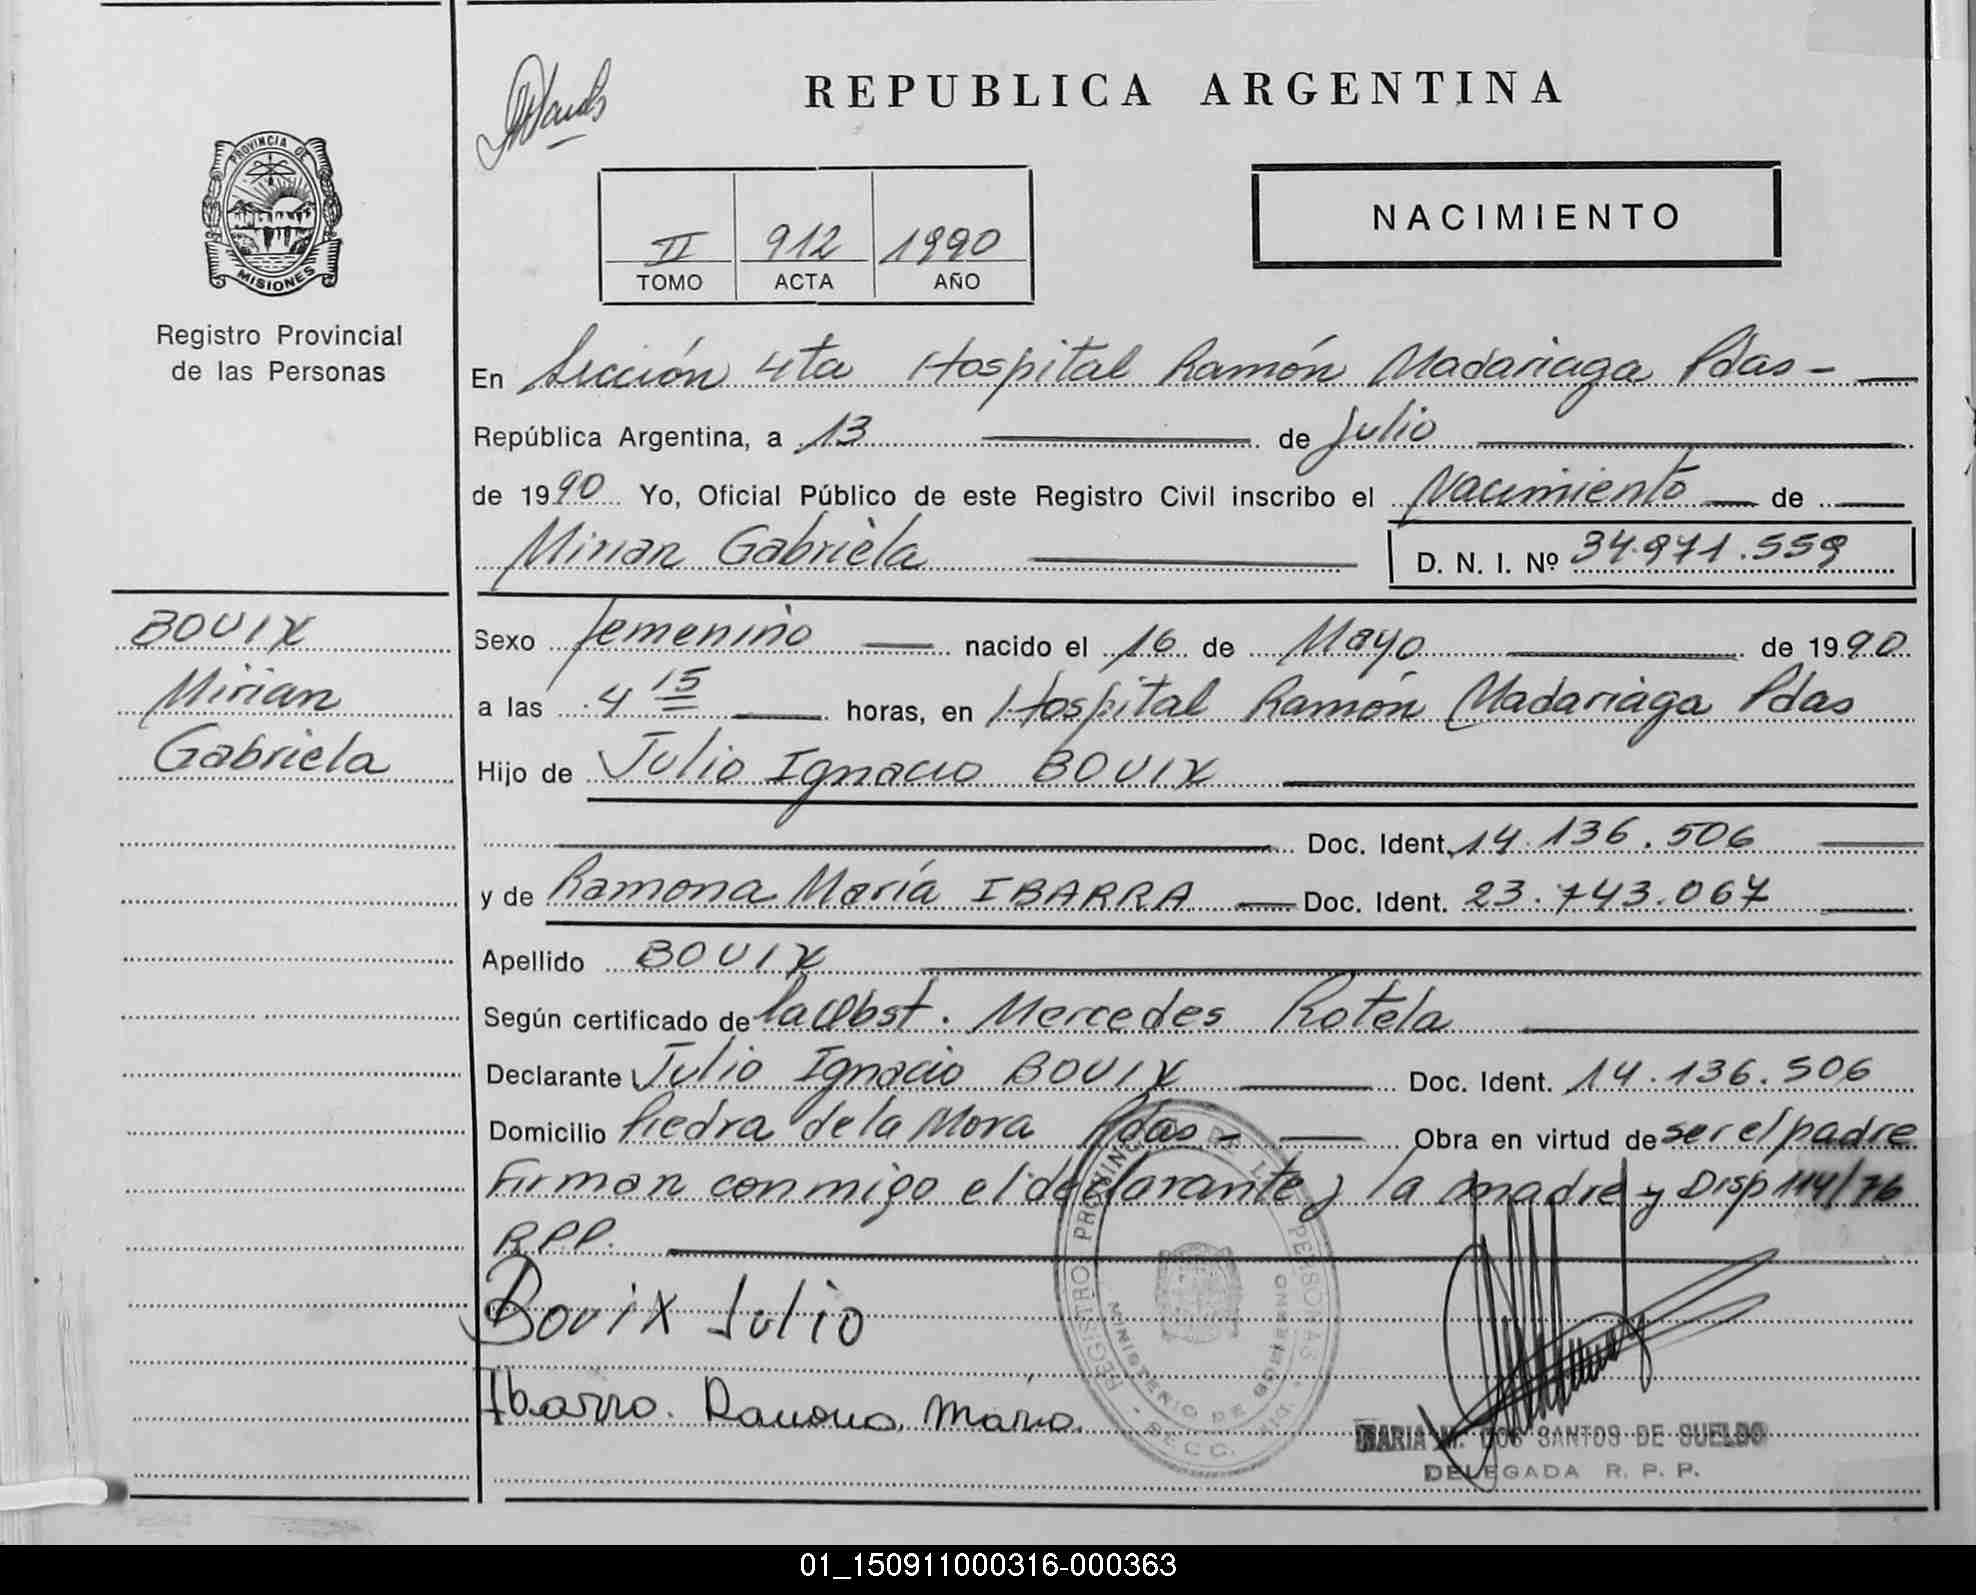 REPUBLICA ARGENTINA
PROVINCIA DE
MISIONES
Registro Provincial
de las Personas
II 912 1990
TOMO ACTA AÑO
NACIMIENTO
En Sección 4ta Hospital Ramón Madariaga Pdas -
República Argentina, a 13 de Julio
de 1990 Yo, Oficial Público de este Registro Civil inscribo el Nacimiento de
Mirian Gabriela D. N. I. Nº 34.971.559
BOUIX
Mirian
Gabriela
Sexo femenino nacido el 16 de Mayo de 1990
a las 4 15 horas, en Hospital Ramón Madariaga Pdas
Hijo de Julio Ignacio BOUIX
Doc. Ident. 14.136.506
y de Ramona María IBARRA Doc. Ident. 23.743.067
Apellido BOUIX
Según certificado de la Obst. Mercedes Rotela
Declarante Julio Ignacio BOUIX Doc. Ident. 14.136.506
Domicilio Piedra de la Mora Pdas - Obra en virtud de ser el padre
Firman conmigo el declarante y la madre y Disp 114/76
R.P.P.
Bouix Julio
Ibarra. Ramona Maria.
REGISTRO PROVINCIAL DE LAS PERSONAS
MINISTERIO DE GOBIERNO
SECC.
MARIA M. DOS SANTOS DE SUELDO
DELEGADA R. P. P.
01_150911000316-000363